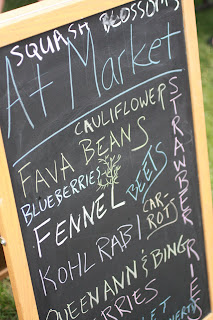 SQUASH BLOSSOMS
At Market
CAULIFLOWER
FAVA BEANS
BLUEBERRIES
BEETS
FENNEL
CAR-
ROTS
KOHL RABI
QUEEN ANN & BING
STRAWBERRIES